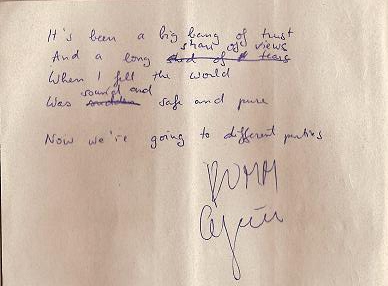 It's been a big bang of trust
share of views
And a long shed of tears
When I felt the world
sound and
Was sudden safe and pure
Now we're going to different parties